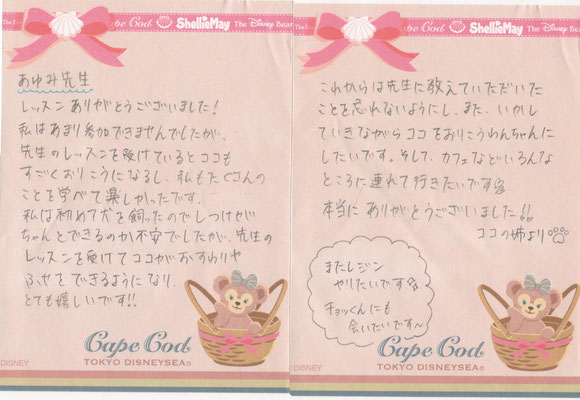 The D
Cape Cod ShellieMay The Disney Bear
あゆみ先生
レッスンありがとうございました!
私はあまり参加できませんでしたが、
先生のレッスンを受けているとココも
すごくおりこうになるし、私もたくさんの
ことを学べて楽しかったです。
私は初めて犬を飼ったのでしつけが
ちゃんとできるのか不安でしたが、先生の
レッスンを受けてココがおすわりや
ふせをできるようになり、
とても嬉しいです!!
Cape Cod
TOKYO DISNEYSEA®
DISNEY
Cape Cod ShellieMay The Disney Bear
これからは先生に教えていただいた
ことを忘れないようにし、また、いかし
ていきながらココをおりこうわんちゃんに
したいです。そして、カフェなどいろんな
ところに連れて行きたいです
本当にありがとうございました!!
ココの姉より
またレジン
やりたいです
チョッくんにも
会いたいです〜
Cape Cod
TOKYO DISNEYSEA®
DISNEY